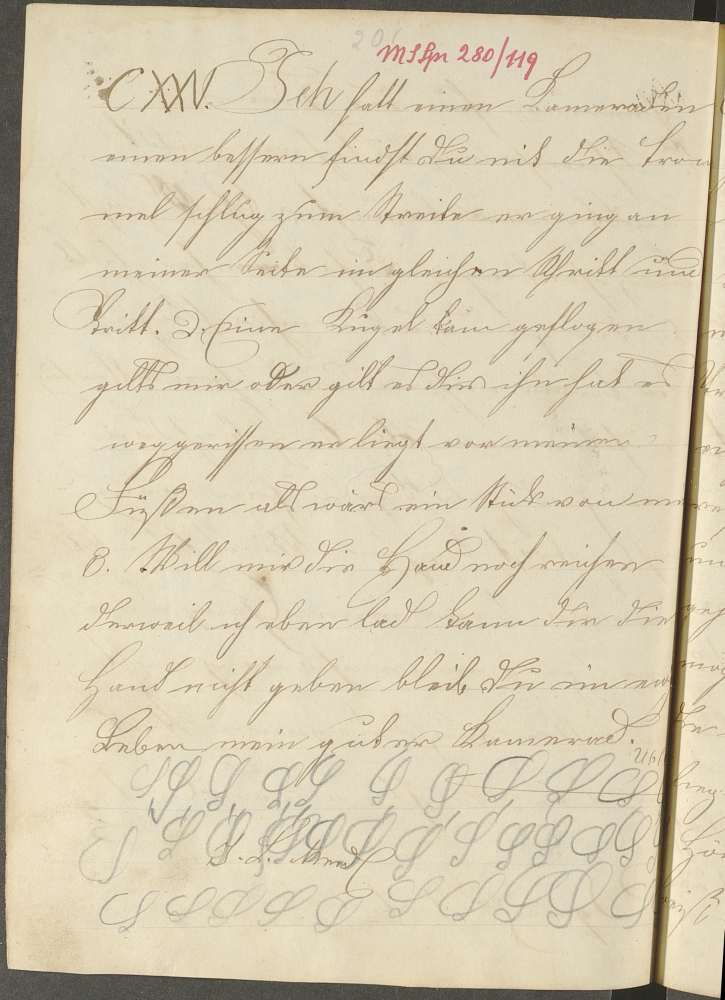 201
MSSpr 280/119
CXXV. Ich hatt einen Kameraden
einen bessern findst Du nit die trom
mel schlug zum Streite er ging an
meiner Seite im gleichen Schritt und
Tritt. 2. Eine Kugel kam geflogen
gilts mir oder gilt es dir ihn hat es
weggerissen er liegt vor meinen
Füßen als wärs ein Stück von mir
3. Will mir die Hand noch reichen
derweil ich eben lad kann dir die
Hand nicht geben bleib Du im ew
Leben mein guter Kamerad.